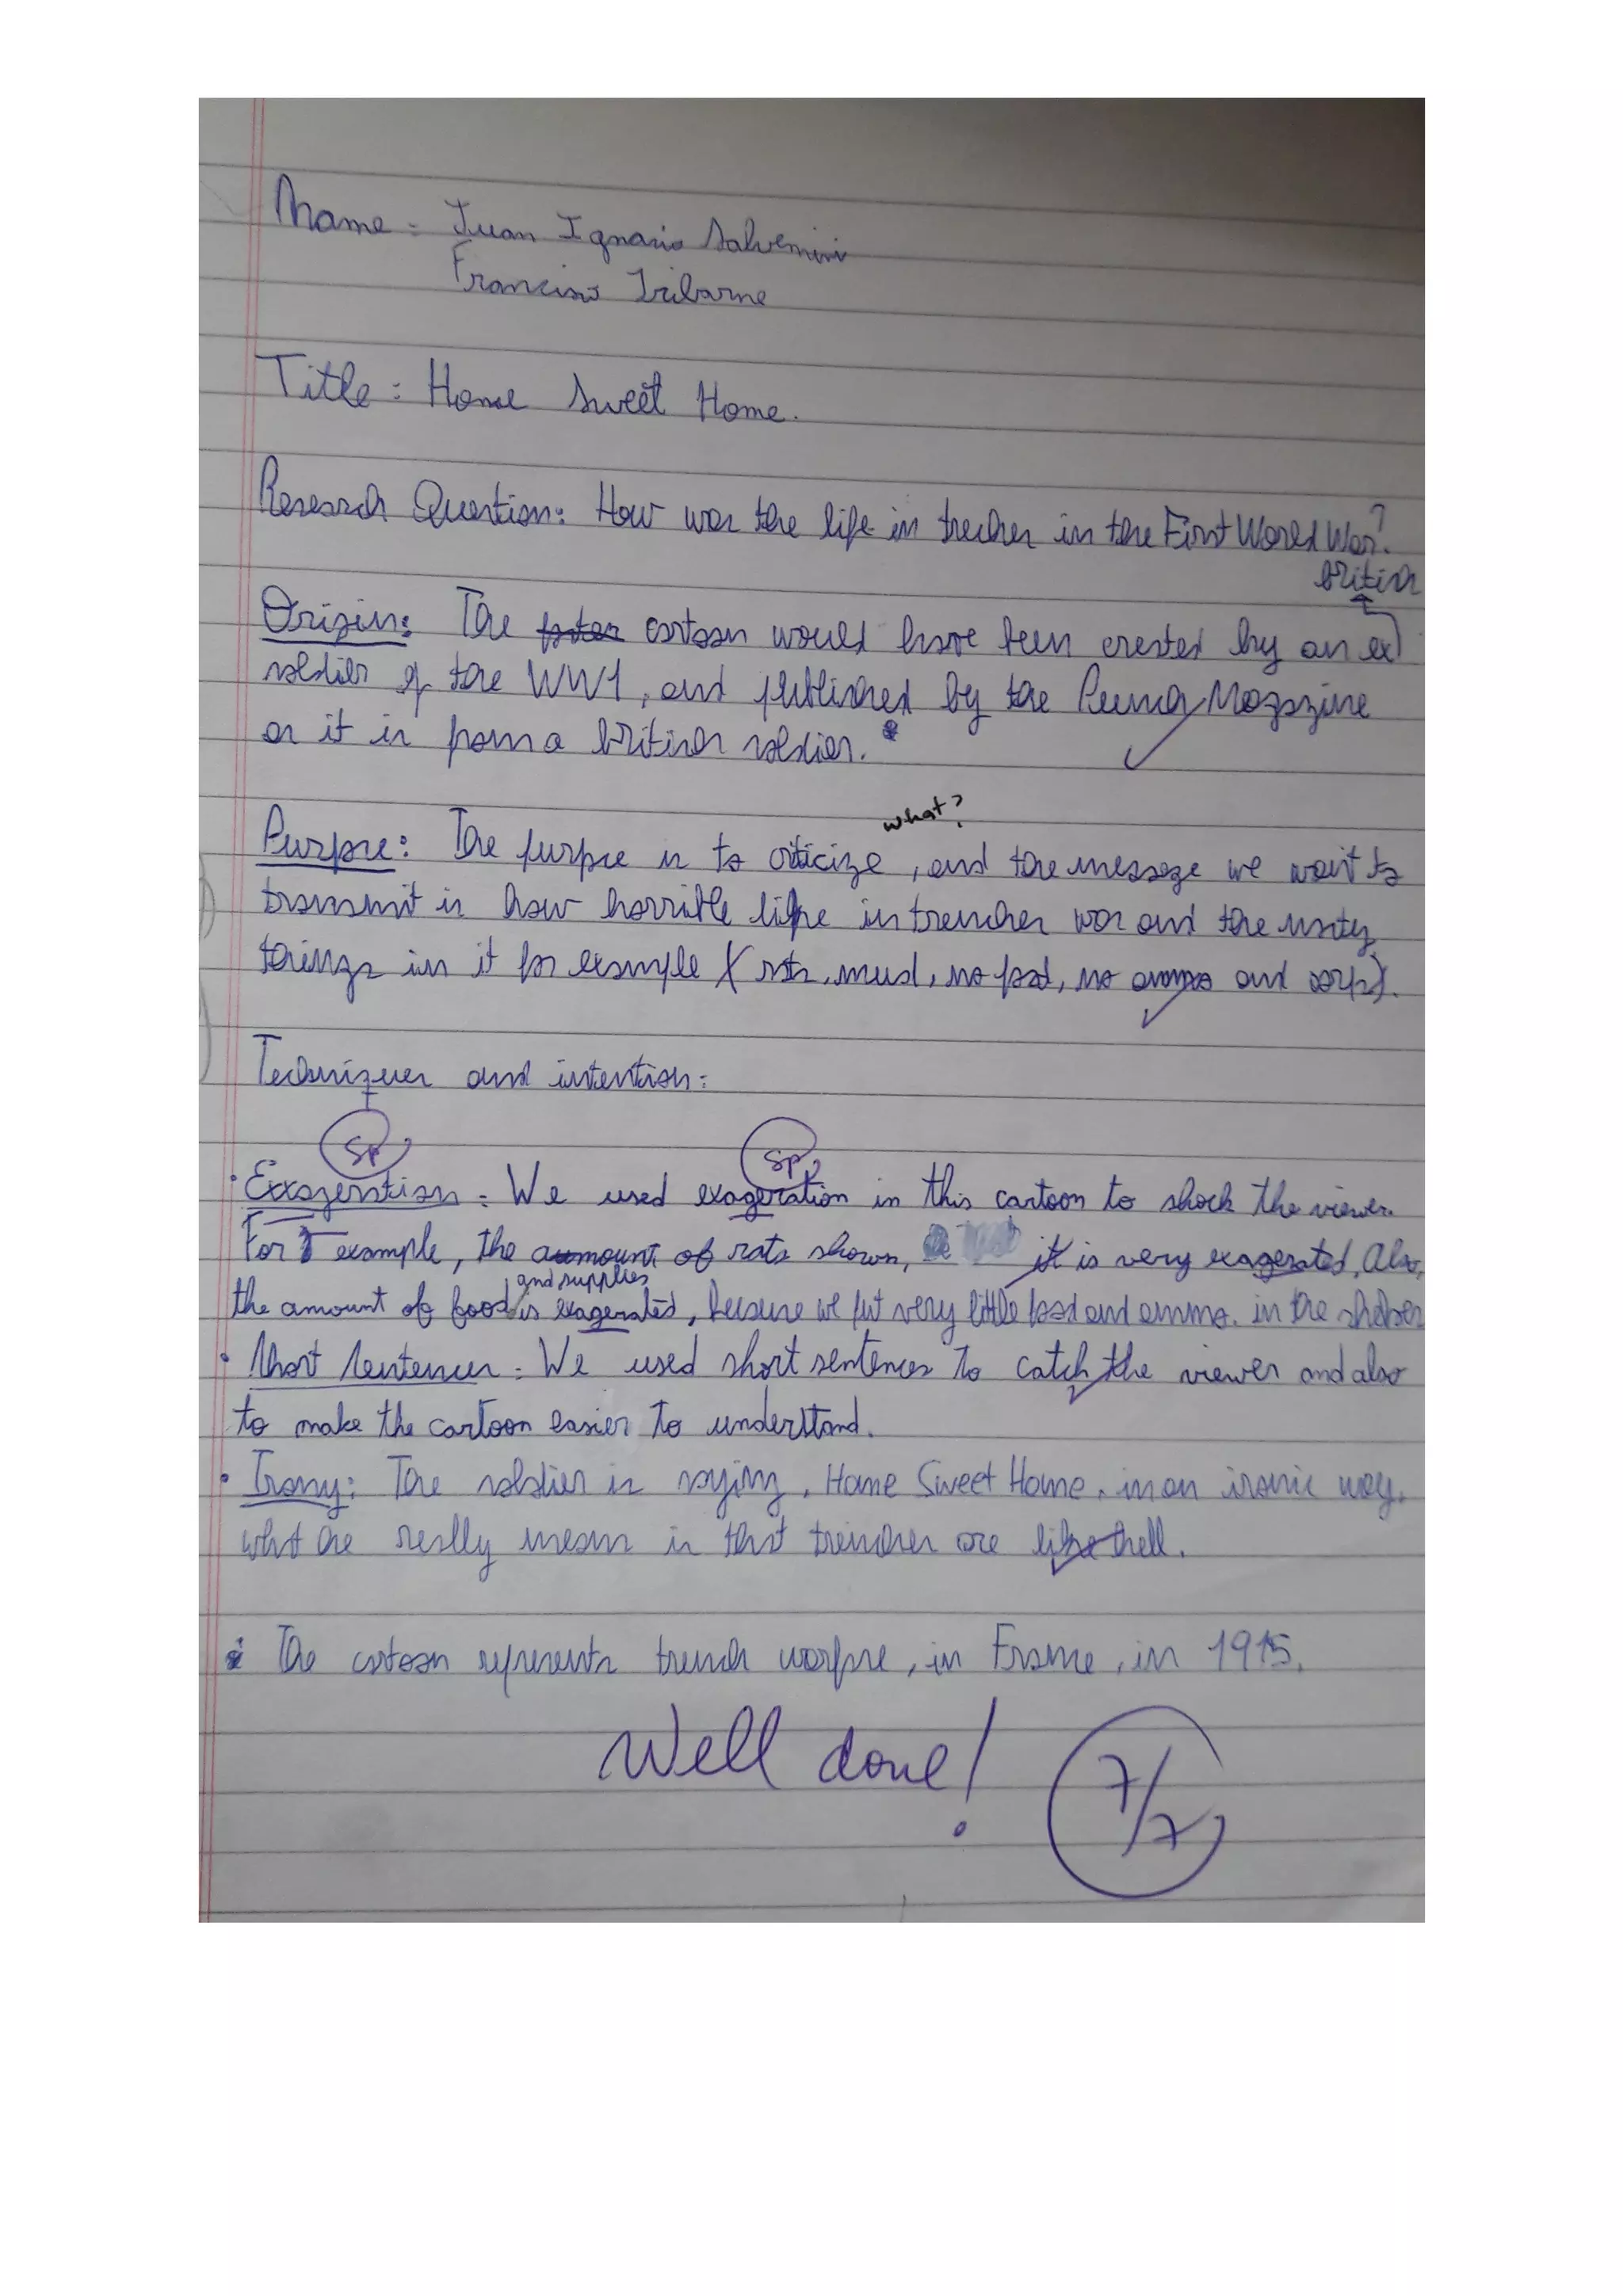 Name = Juan Ignacio Salvemini
Francisco Iribarne
Title: Home Sweet Home.
Research Question: How was the life in treches in the First World War?
british
Origin: The cartoon would have been created by an ex
soldier of the WW1, and published by the Punch Magazine
as it is from a british soldier. *
what?
Purpose: The purpose is to criticize, and the message we want to
transmit is how horrible life in trenches was and the nasty
things in it for example (rats, mud, no food, no ammo and corps).
Techniques and intention:
Sp Sp
• Exxageration = We used exageration in this cartoon to shock the viewer.
For example, the amount of rats shown, it is very exagerated. Also,
and supplies
the amount of food is exagerated, because we put very little food and ammo. in the shelves
• Short Sentences = We used short sentences to catch the viewer and also
to make the cartoon easier to understand.
• Irony: The soldier is saying, Home Sweet Home, in an ironic way.
what he really means is that trenches are like hell.
* The cartoon represents trench warfare, in France, in 1915.
Well done! 7/7